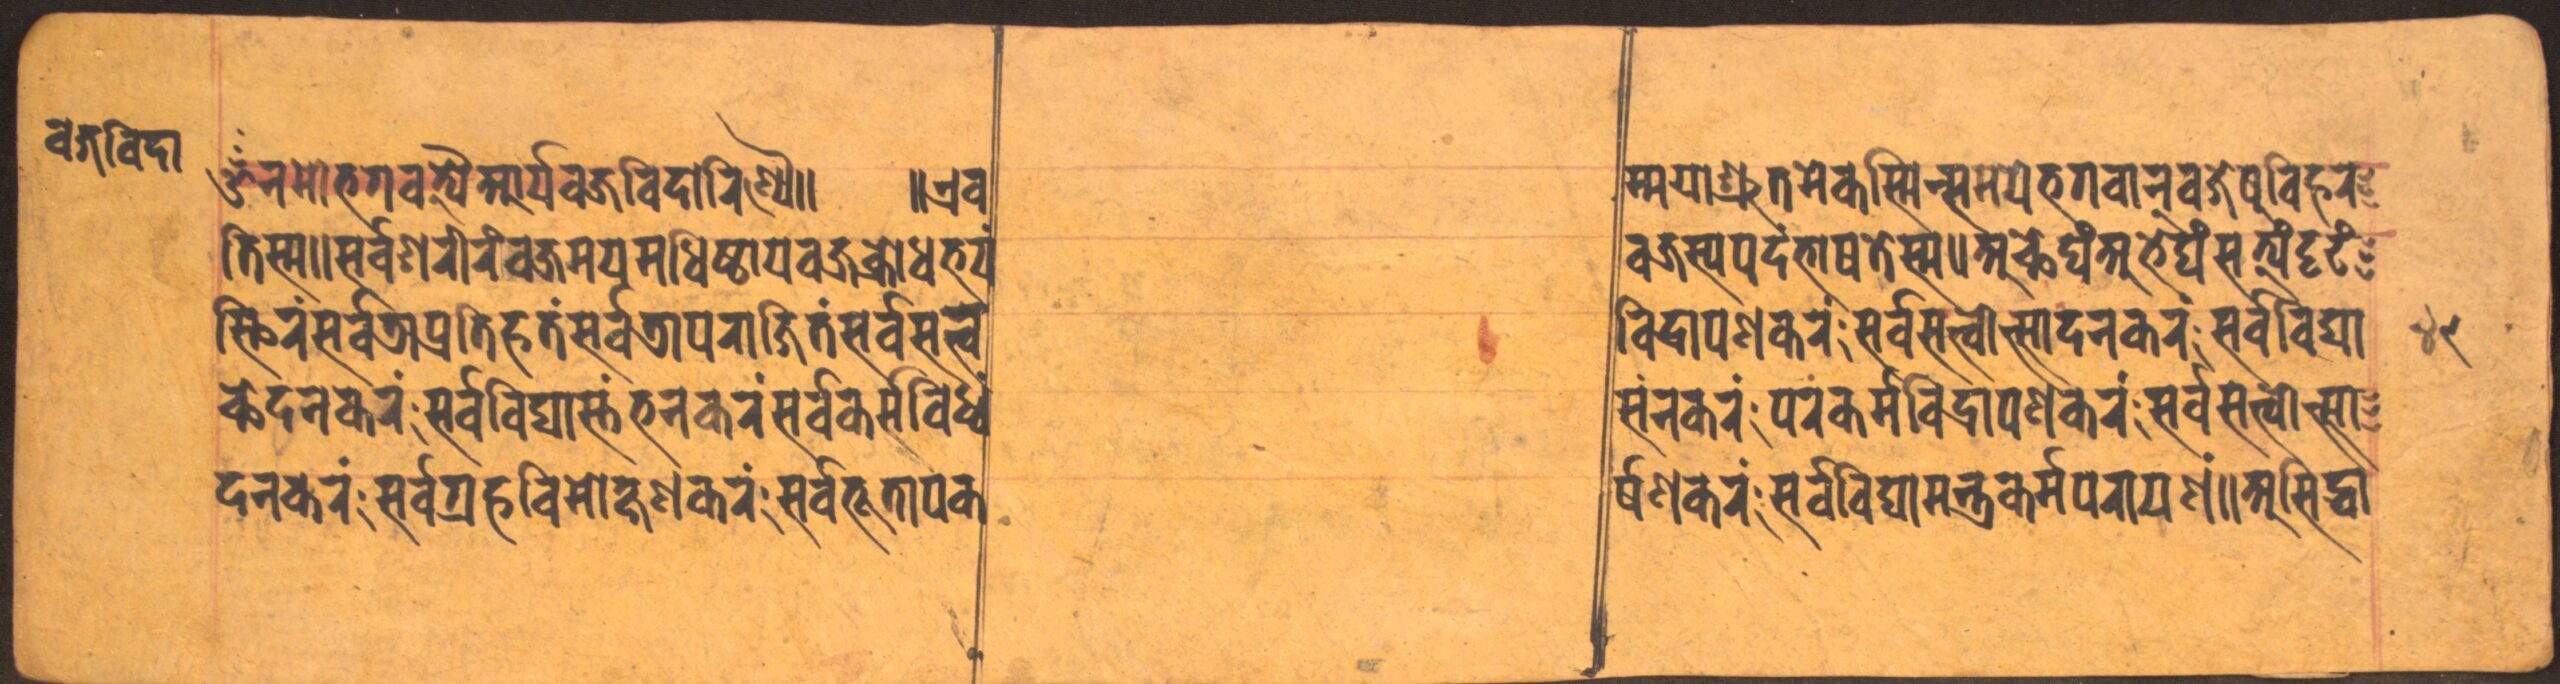 वज्रविदा
ॐ नमो भगवत्यै आर्यवज्रविदारिण्यै॥ ॥एव
म्मया श्रुतमेकस्मिन्समये भगवान् वज्रेषु विहर
ति स्म॥सर्वशरीरं वज्रमयमधिष्ठाय वज्रक्रोधभयं
वज्रस्यपदं भाषते स्म॥अच्छेद्यं अभेद्यं सत्यं दृढं
स्थिरं सर्वत्राप्रतिहतं सर्वत्रापराजितं सर्वसत्त्व
विद्रापणकरं सर्वसत्त्वोत्सादनकरं सर्वविद्या
च्छेदनकरं सर्वविद्यास्तंभनकरं सर्वकर्मविध्वं
संनकरं परंकर्मविद्रापणकरं सर्वसत्त्वोत्सा
दनकरं सर्वग्रहविमोक्षणकरं सर्वभूतापक
र्षणकरं सर्वविद्यामन्त्रकर्मपरायणं॥असिद्धा